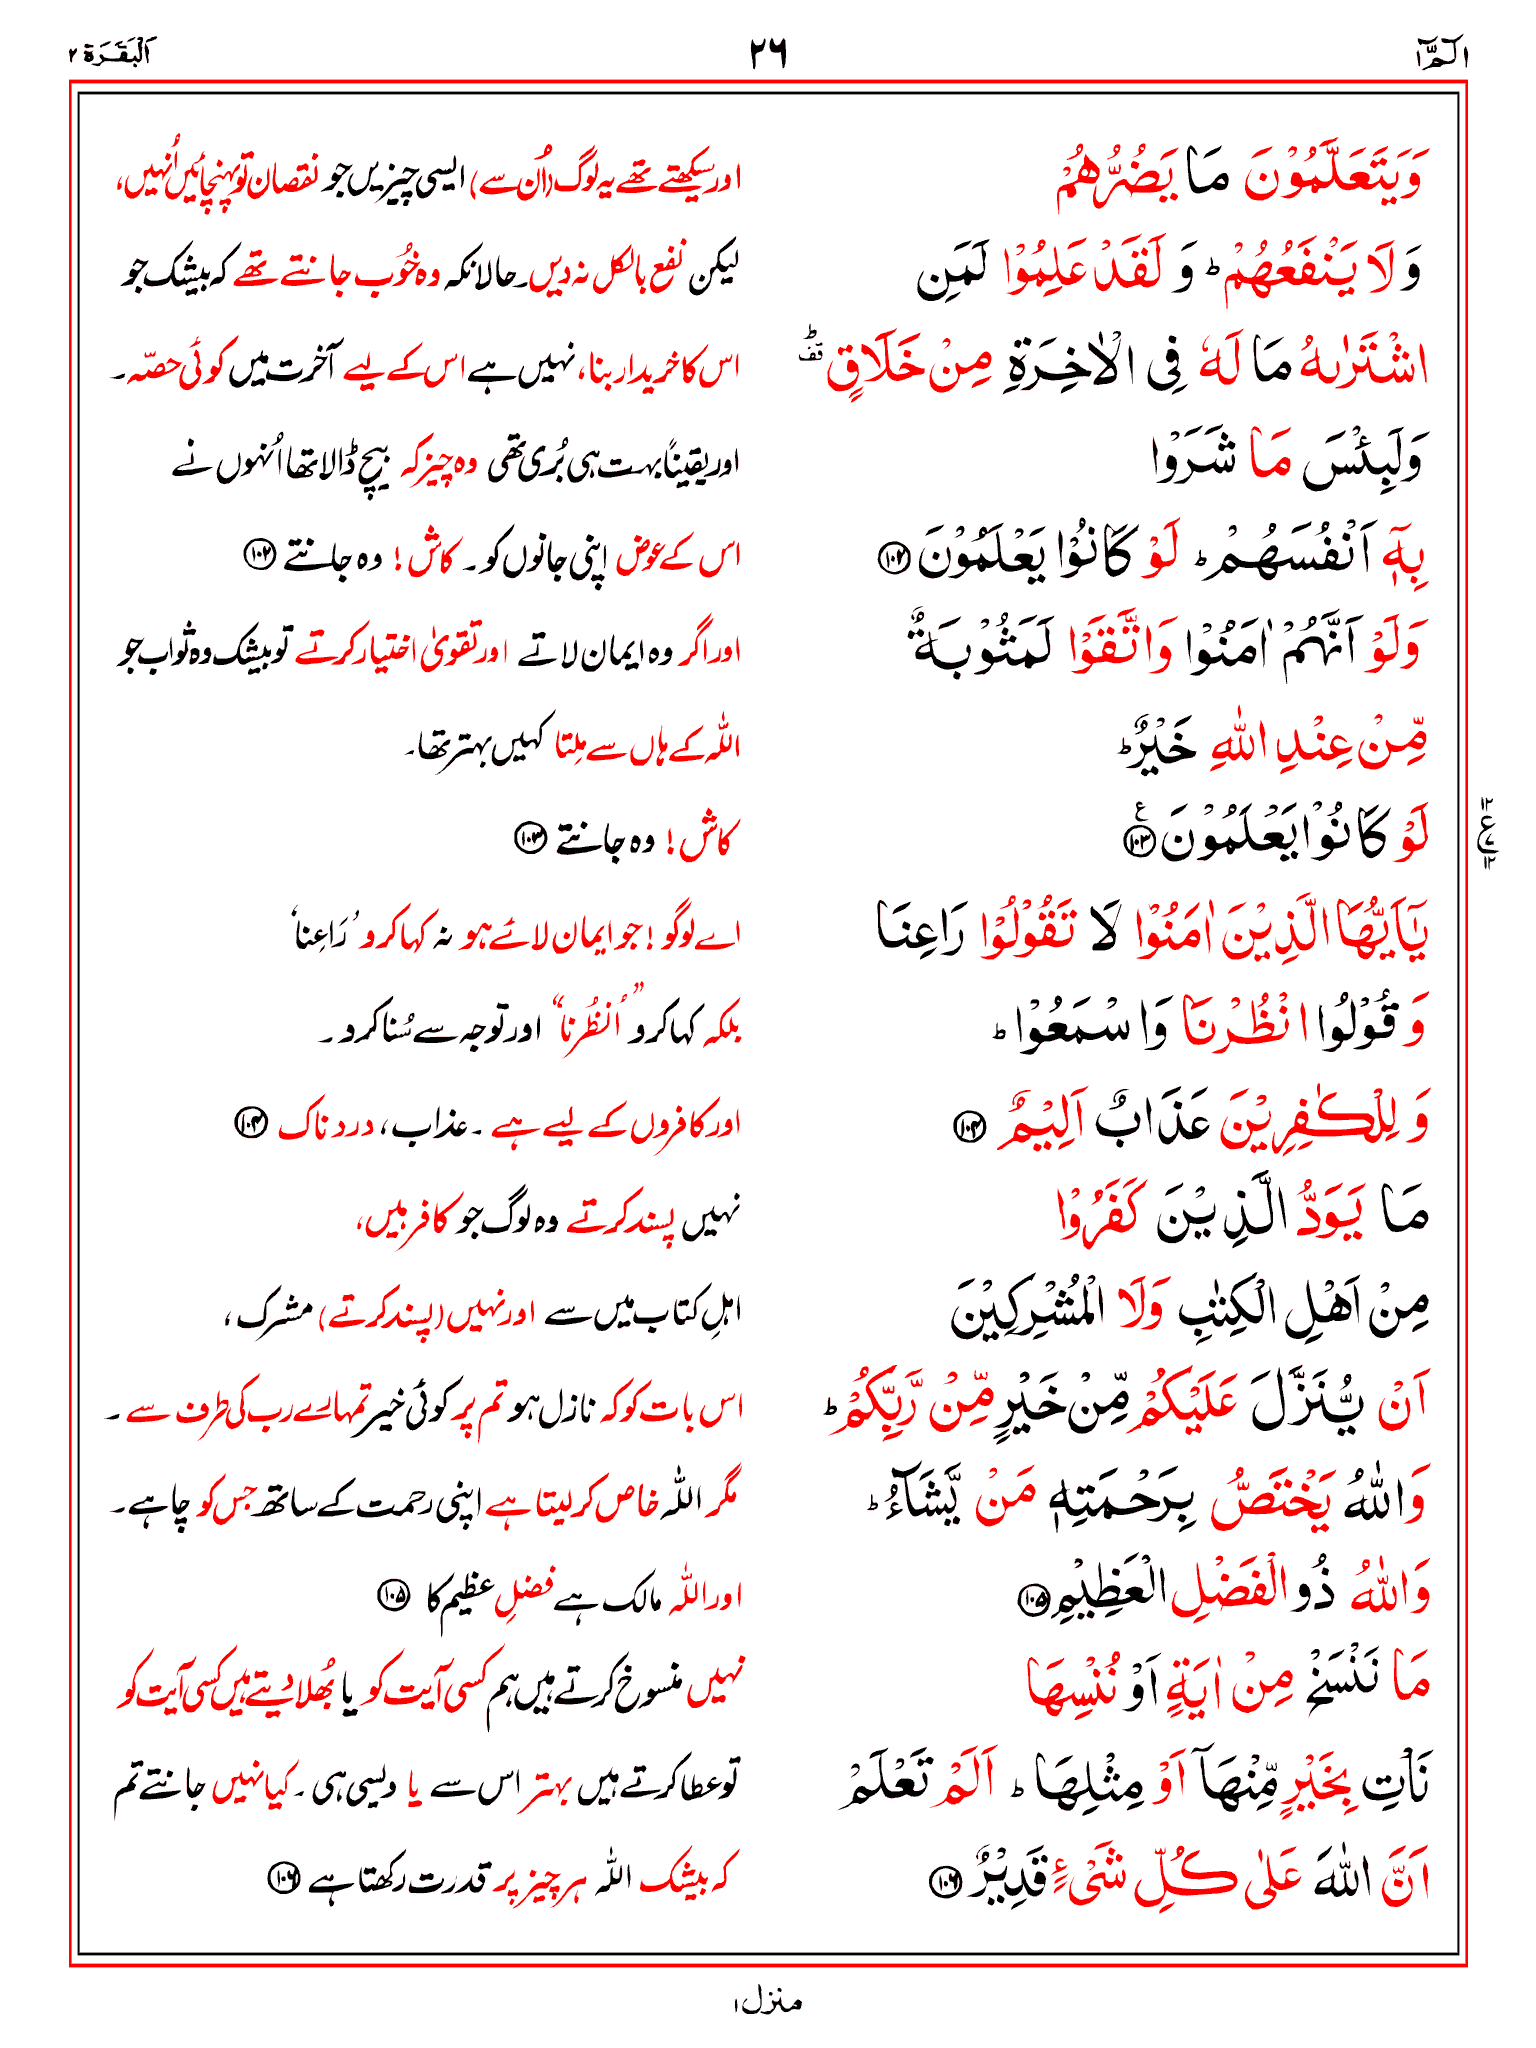 الٓمّٓ ١ ٢٦ اَلْبَقَرَة ٢
وَيَتَعَلَّمُوْنَ مَا يَضُرُّهُمْ اور سیکھتے تھے یہ لوگ (اُن سے) ایسی چیزیں جو نقصان تو پہنچائیں اُنہیں،
وَلَا يَنْفَعُهُمْ ؕ وَ لَقَدْ عَلِمُوْا لَمَنِ لیکن نفع بالکل نہ دیں۔ حالانکہ وہ خُوب جانتے تھے کہ بیشک جو
اشْتَرٰىهُ مَا لَهٗ فِى الْاٰخِرَةِ مِنْ خَلَاقٍ ؕ قف اس کا خریدار بنا، نہیں ہے اس کے لیے آخرت میں کوئی حصّہ۔
وَلَبِئْسَ مَا شَرَوْا اور یقیناً بہت ہی بُری تھی وہ چیز کہ بیچ ڈالا تھا اُنہوں نے
بِهٖٓ اَنْفُسَهُمْ ؕ لَوْ كَانُوْا يَعْلَمُوْنَ ﴿۱۰۲﴾ اس کے عوض اپنی جانوں کو۔ کاش! وہ جانتے ﴿۱۰۲﴾
وَلَوْ اَنَّهُمْ اٰمَنُوْا وَاتَّقَوْا لَمَثُوْبَةٌ اور اگر وہ ایمان لاتے اور تقویٰ اختیار کرتے تو بیشک وہ ثواب جو
مِّنْ عِنْدِ اللّٰهِ خَيْرٌ ؕ اللّٰہ کے ہاں سے مِلتا کہیں بہتر تھا۔
لَوْ كَانُوْا يَعْلَمُوْنَ ﴿۱۰۳﴾ ع کاش! وہ جانتے ﴿۱۰۳﴾
يٰٓاَيُّهَا الَّذِيْنَ اٰمَنُوْا لَا تَقُوْلُوْا رَاعِنَا اے لوگو! جو ایمان لائے ہو نہ کہا کرو ’رَاعِنا‘
وَ قُوْلُوا انْظُرْنَا وَاسْمَعُوْا ؕ بلکہ کہا کرو ”اُنظُرنا“ اور توجہ سے سُنا کرو۔
وَ لِلْكٰفِرِيْنَ عَذَابٌ اَلِيْمٌ ﴿۱۰۴﴾ اور کافروں کے لیے ہے۔ عذاب، درد ناک ﴿۱۰۴﴾
مَا يَوَدُّ الَّذِيْنَ كَفَرُوْا نہیں پسند کرتے وہ لوگ جو کافر ہیں،
مِنْ اَهْلِ الْكِتٰبِ وَلَا الْمُشْرِكِيْنَ اہلِ کتاب میں سے اور نہیں (پسند کرتے) مشرک،
اَنْ يُّنَزَّلَ عَلَيْكُمْ مِّنْ خَيْرٍ مِّنْ رَّبِّكُمْ ؕ اس بات کو کہ نازل ہو تم پر کوئی خیر تمہارے رب کی طرف سے۔
وَاللّٰهُ يَخْتَصُّ بِرَحْمَتِهٖ مَنْ يَّشَآءُ ؕ مگر اللّٰہ خاص کر لیتا ہے اپنی رحمت کے ساتھ جس کو چاہے۔
وَاللّٰهُ ذُو الْفَضْلِ الْعَظِيْمِ ﴿۱۰۵﴾ اور اللّٰہ مالک ہے فضلِ عظیم کا ﴿۱۰۵﴾
مَا نَنْسَخْ مِنْ اٰيَةٍ اَوْ نُنْسِهَا نہیں منسوخ کرتے ہیں ہم کسی آیت کو یا بُھلا دیتے ہیں کسی آیت کو
نَاْتِ بِخَيْرٍ مِّنْهَآ اَوْ مِثْلِهَا ؕ اَلَمْ تَعْلَمْ تو عطا کرتے ہیں بہتر اس سے یا ویسی ہی۔ کیا نہیں جانتے تم
اَنَّ اللّٰهَ عَلٰى كُلِّ شَىْءٍ قَدِيْرٌ ﴿۱۰۶﴾ کہ بیشک اللّٰہ ہر چیز پر قدرت رکھتا ہے ﴿۱۰۶﴾
منزل ۱